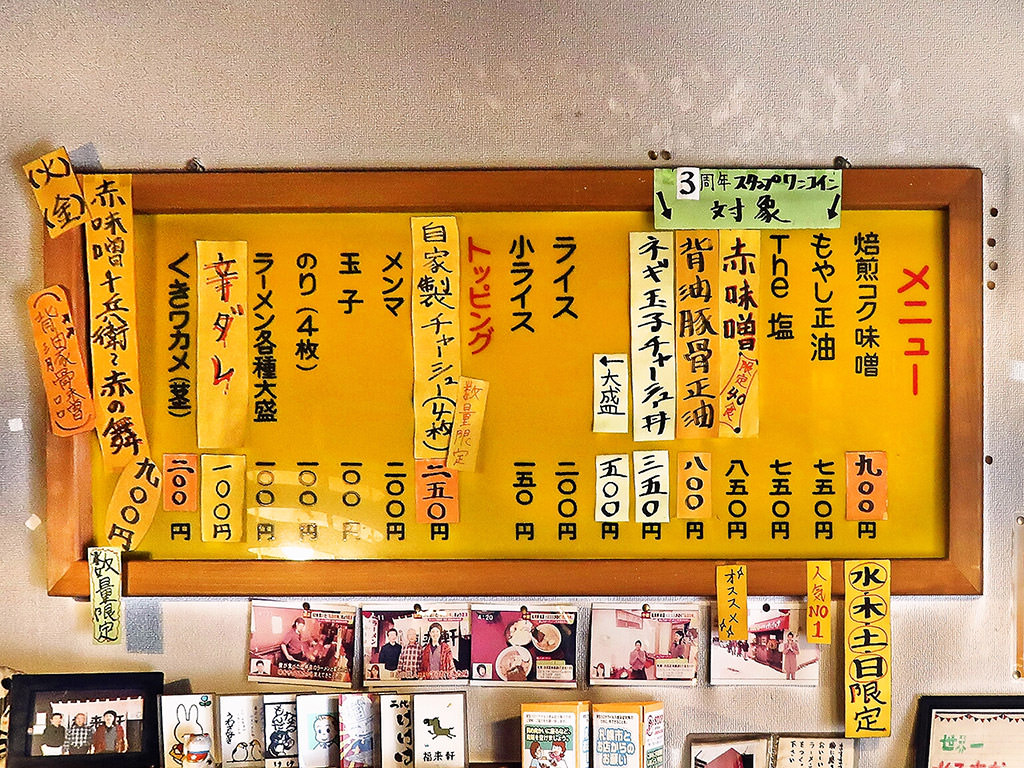 3周年スタンプワンコイン
対象
メニュー
焙煎コク味噌 九〇〇円
もやし正油 七五〇円
The 塩 七五〇円
赤味噌 八五〇円
背油豚骨正油 八〇〇円
ネギ玉子チャーシュ丼 三五〇円
←大盛 五〇〇円
ライス 二〇〇円
小ライス 一五〇円
トッピング
自家製チャーシュー(4枚) 二五〇円
数量限定
メンマ 二〇〇円
玉子 一〇〇円
のり(4枚) 一〇〇円
ラーメン各種大盛 一〇〇円
辛ダレ 一〇〇円
くきワカメ(茎) 二〇〇円
(火)
(金)
赤味噌十兵衛 赤の舞
九〇〇円
数量限定
水・木・土・日限定
人気NO1
オススメ
福来軒
札幌市と
お店からの
お願い
世界一